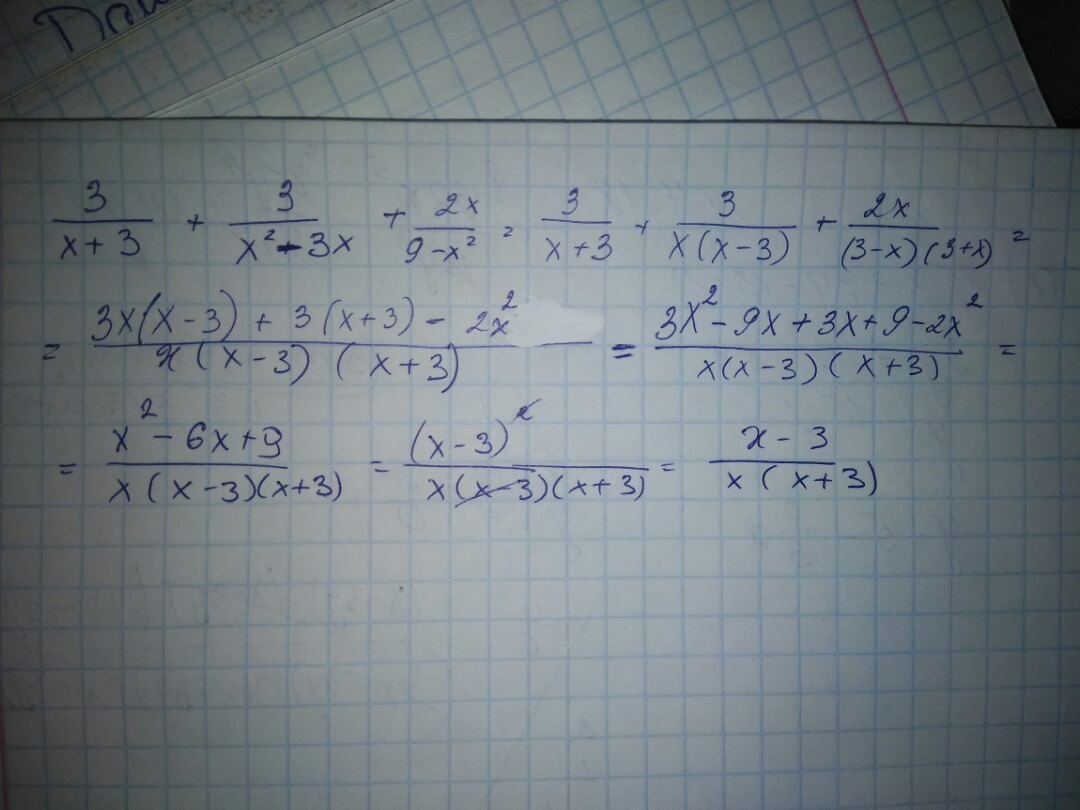 3/(x+3) + 3/(x²-3x) + 2x/(9-x²) = 3/(x+3) + 3/(x(x-3)) + 2x/((3-x)(3+x)) =
= (3x(x-3) + 3(x+3) - 2x²)/(x(x-3)(x+3)) = (3x²-9x+3x+9-2x²)/(x(x-3)(x+3)) =
= (x²-6x+9)/(x(x-3)(x+3)) = (x-3)²/(x(x-3)(x+3)) = (x-3)/(x(x+3))